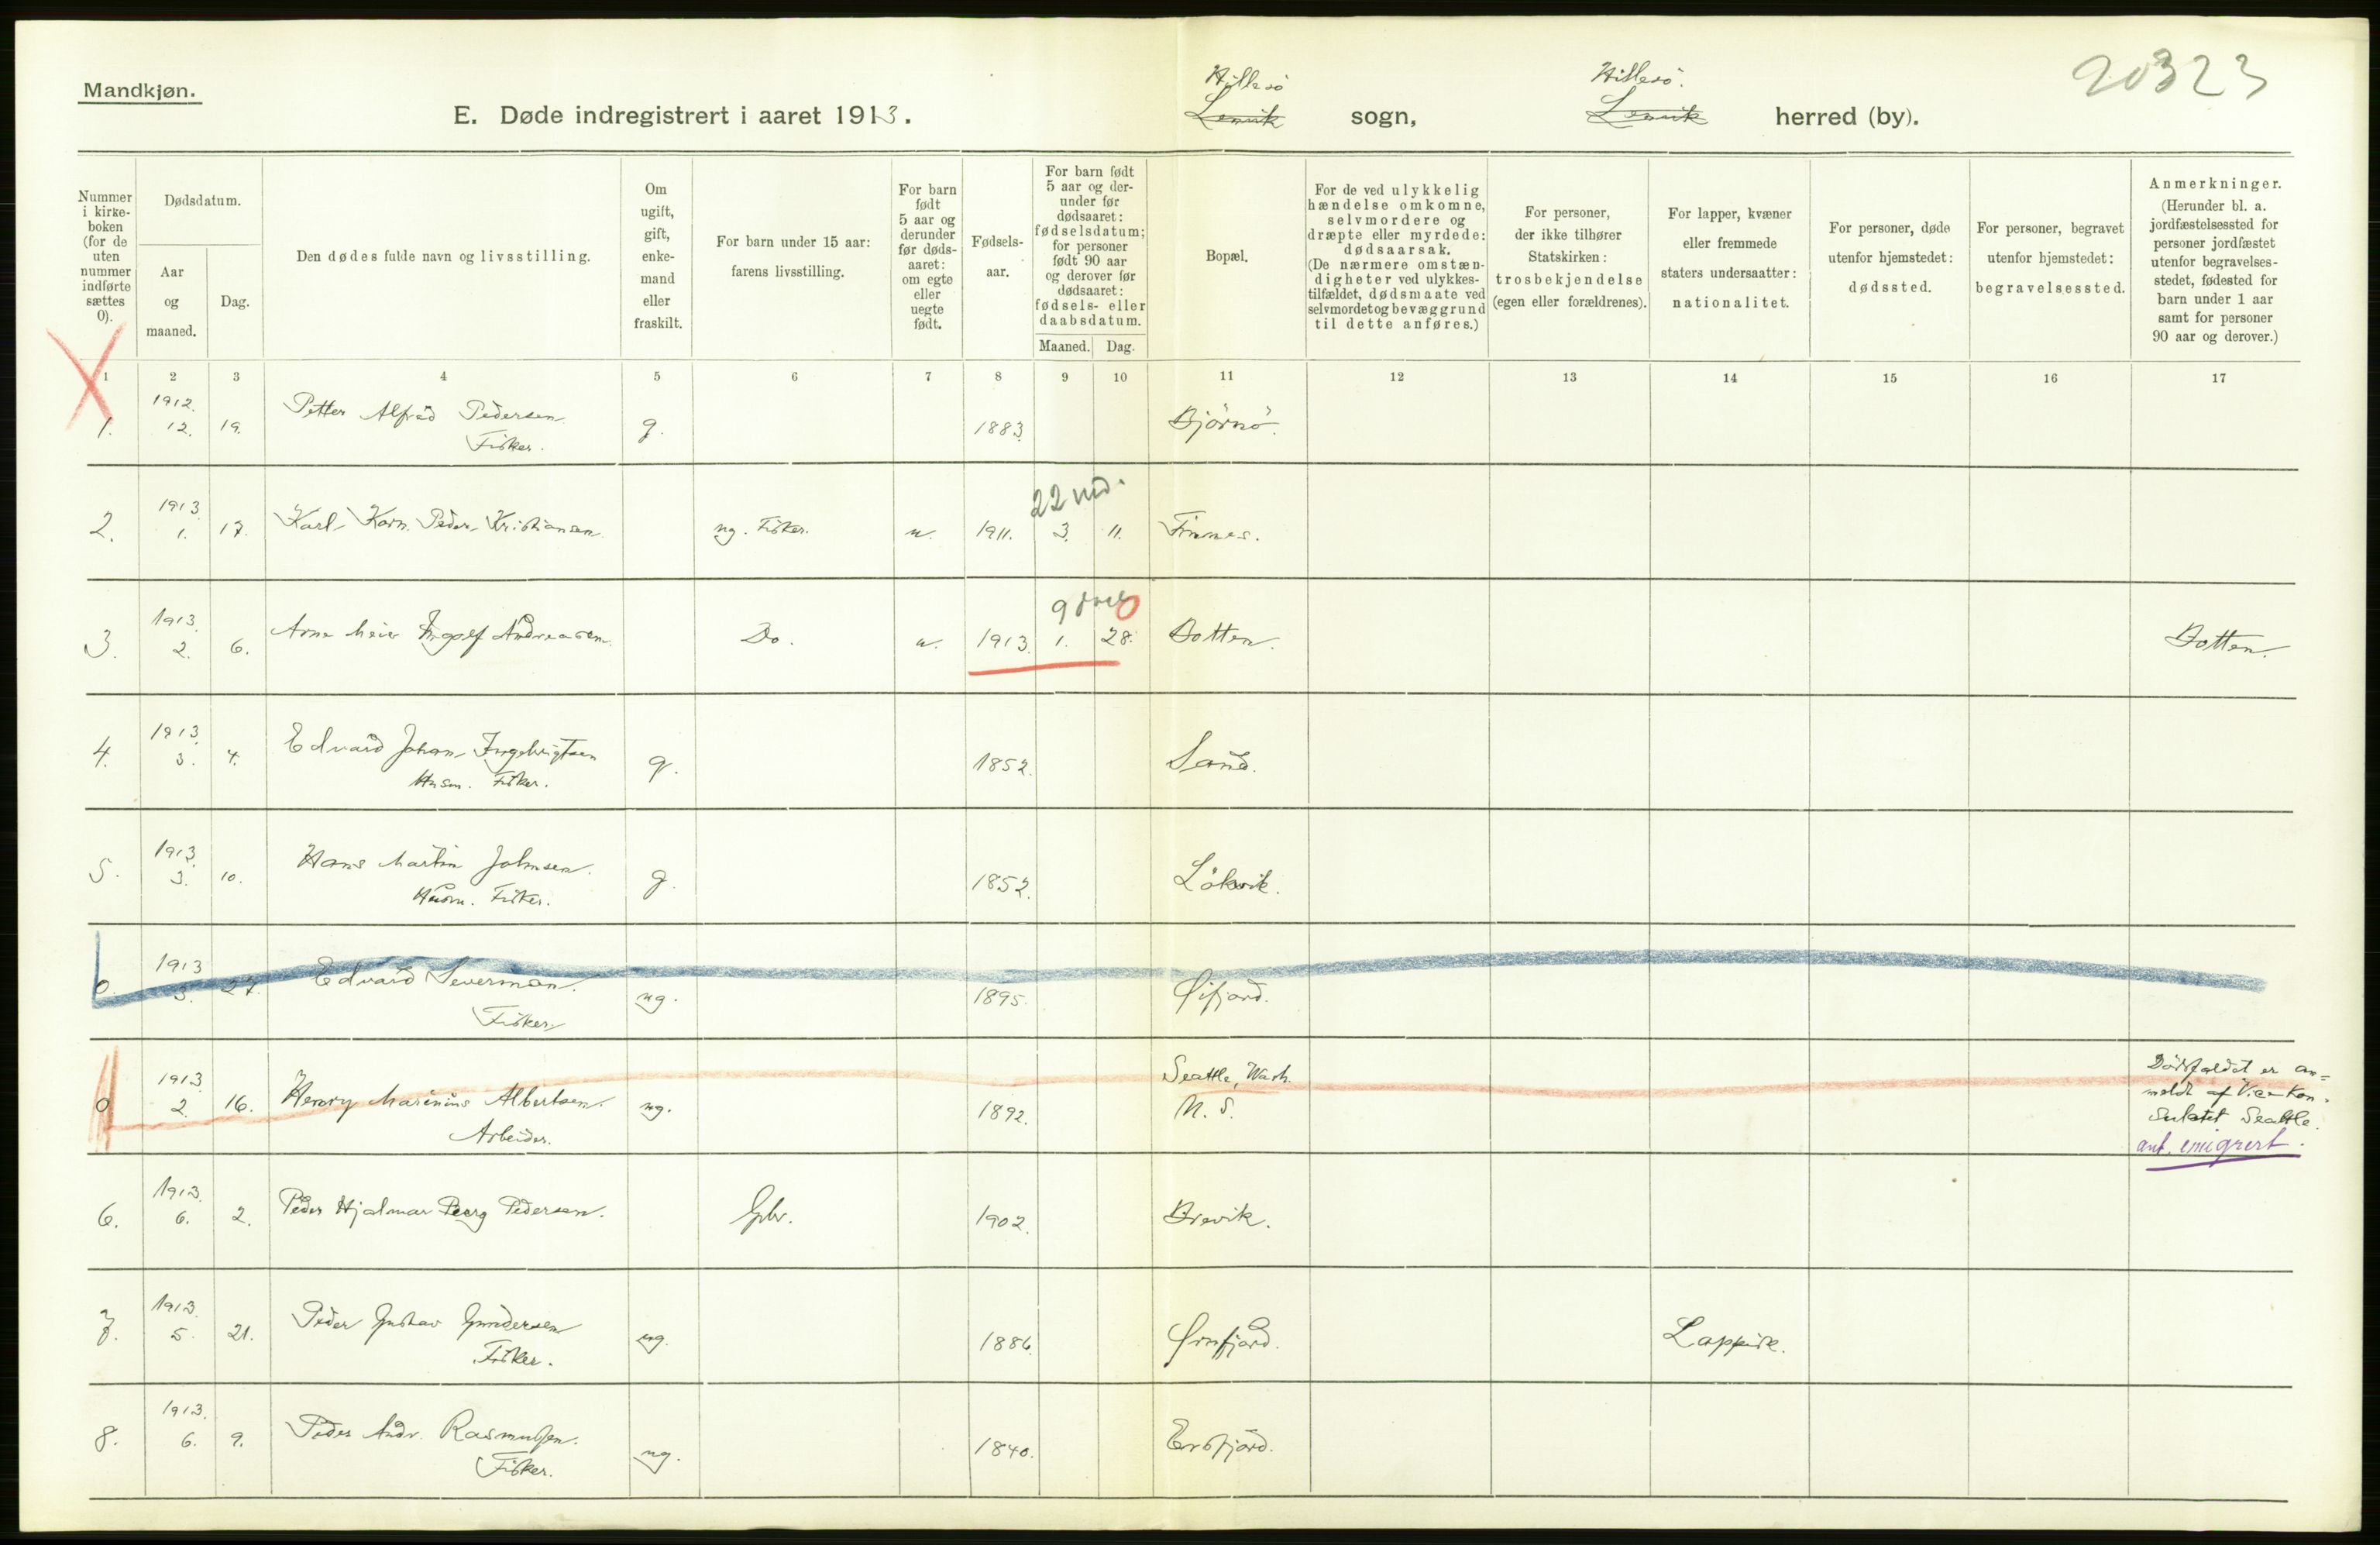 Mandkjøn.
E. Døde indregistrert i aaret 1913.
Hillesö
Lenvik
sogn,
Hillesö.
Lenvik
herred (by).
20323
Nummer i kirke-boken (for de uten nummer indførte sættes 0).
Dødsdatum.
Aar og maaned.
Dag.
Den dødes fulde navn og livsstilling.
Om ugift, gift, enke-mand eller fraskilt.
For barn under 15 aar: farens livsstilling.
For barn født 5 aar og derunder før døds-aaret: om egte eller uegte født.
Fødsels-aar.
For barn født 5 aar og der-under før dødsaaret: fødselsdatum; for personer født 90 aar og derover før dødsaaret: fødsels- eller daabsdatum.
Maaned. Dag.
Bopæl.
For de ved ulykkelig hændelse omkomne, selvmordere og dræpte eller myrdede: dødsaarsak. (De nærmere omstæn-digheter ved ulykkes-tilfældet, dødsmaate ved selvmordet og bevæggrund til dette anføres.)
For personer, der ikke tilhører Statskirken: trosbekjendelse (egen eller forældrenes).
For lapper, kvæner eller fremmede staters undersaatter: nationalitet.
For personer, døde utenfor hjemstedet: dødssted.
For personer, begravet utenfor hjemstedet: begravelsessted.
Anmerkninger. (Herunder bl. a. jordfæstelsessted for personer jordfæstet utenfor begravelses-stedet, fødested for barn under 1 aar samt for personer 90 aar og derover.)
1 2 3 4 5 6 7 8 9 10 11 12 13 14 15 16 17
1912.
1. 12. 19. Petter Alfred Pedersen g. 1883. Björnö.
Fisker.
22 md.
1913
2. 1. 17. Karl Korn. Peder Kristiansen ug. Fisker. u. 1911. 3. 11. Finnes.
9 0
1913.
3. 2. 6. Arne Meier Ingolf Andreasen. Do. u. 1913. 1. 28. Botten. Botten.
1913.
4. 3. 4. Edvard Johan Ingebrigtsen g. 1852. Sand.
Husm. Fisker.
1913.
5. 3. 10. Hans Martin Johnsen. g. 1852. Lökvik.
Husm. Fisker.
1913
0. 3. 27. Edvard Severinsen. ug. 1895. Øifjord.
Fisker
1913. Seattle, Wash. Dödsfaldet er an=
0 2. 16. Henry Marinius Albertsen. ug. 1892. N. S. meldt af Vice-Kon-
Arbeider. sulatet Seattle.
ant. emigrert.
1913.
6. 6. 2. Peder Hjalmar Berg Pedersen. Gbr. 1902. Brevik.
1913.
7. 5. 21. Peder Gustav Gundersen ug. 1886. Ørnfjord. Lappisk.
Fisker.
1913.
8. 6. 9. Peder Andr. Rasmussen. ug. 1840. Ersfjord.
Fisker.